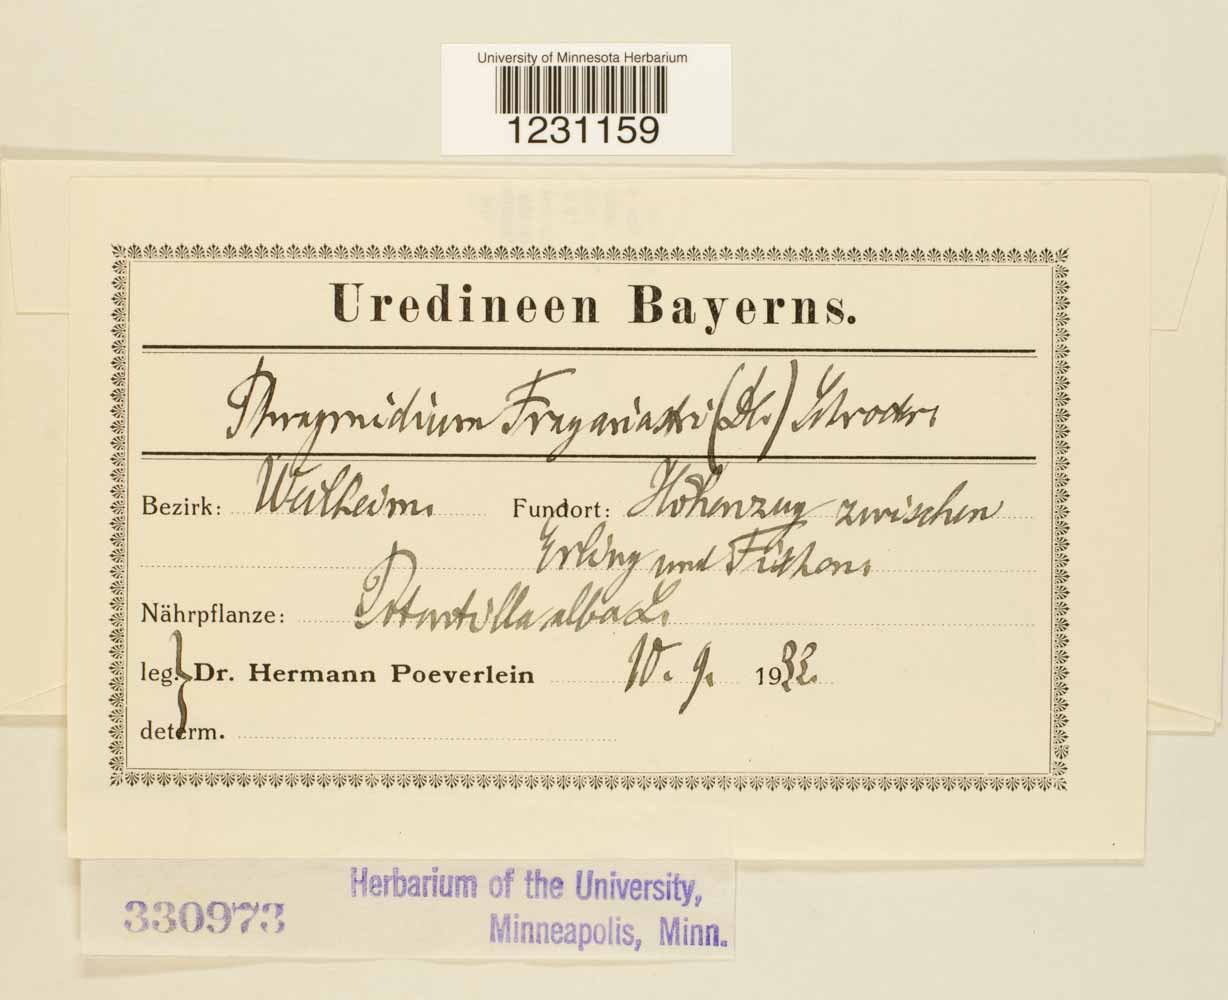 University of Minnesota Herbarium
1231159
Uredineen Bayerns.
Phragmidium Fragariastri (DC.) Schroeter.
Bezirk: Weilheim. Fundort: Höhenzug zwischen
Erling und Fischen.
Nährpflanze: Potentilla alba L.
leg. Dr. Hermann Poeverlein 10. 9. 1932.
determ.
Herbarium of the University,
330973 Minneapolis, Minn.